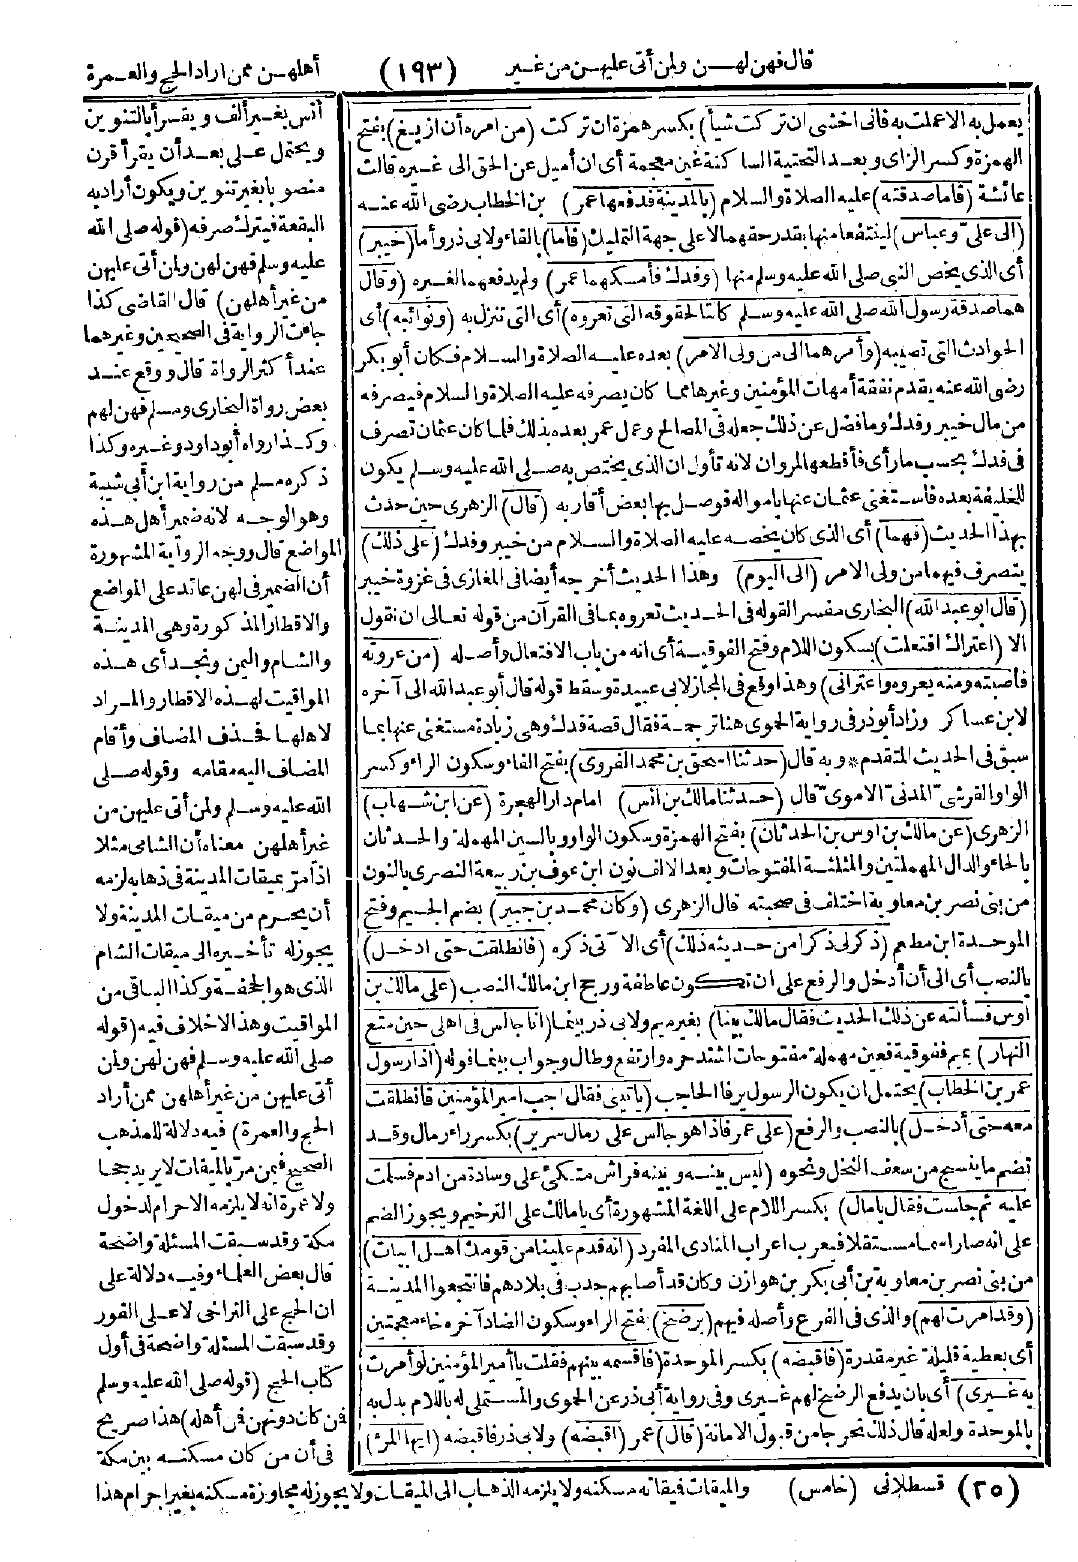 قال فهن لهن ولمن أتى عليهن من غير (١٩٣) أهلهن ممن أراد الحج والعمرة
يعمل به الا عملت به فانى اخشى ان تركت شيأ) بكسر همزة ان تركت (من امره أن ازيغ) بفتح
الهمزة وكسر الزاى وبعد التحتية الساكنة غين معجمة أى ان أميل عن الحق الى غيره قالت
عائشة (فاما صدقته) عليه الصلاة والسلام (بالمدينة فدفعها عمر) بن الخطاب رضى الله عنه
(الى على وعباس) لينتفعا منها بقدر حقهما لا على جهة التمليك (فاما) بالفاء ولابى ذر وأما (خيبر)
أى الذى يخص النبى صلى الله عليه وسلم منها (وفدك فأمسكهما عمر) ولم يدفعهما لغيره (وقال
هما صدقة رسول الله صلى الله عليه وسلم كانتا لحقوقه التى تعروه) أى التى تنزل به (ونوائبه) أى
الحوادث التى تصيبه (وأمرهما الى من ولى الامر) بعده عليه الصلاة والسلام فكان أبو بكر
رضى الله عنه يقدم نفقة أمهات المؤمنين وغيرها مما كان يصرفه عليه الصلاة والسلام فيصرفه
من مال خيبر وفدك وما فضل عن ذلك جعله فى المصالح وعمل عمر بعده بذلك فلما كان عثمان تصرف
فى فدك بحسب ما رأى فأقطعها لمروان لانه تأول ان الذى يختص به صلى الله عليه وسلم يكون
للخليفة بعده فاستغنى عثمان عنها باموا له فوصل بها بعض أقاربه (قال) الزهرى حين حدث
بهذا الحديث (فهما) أى الذى كان يخصه عليه الصلاة والسلام من خيبر وفدك (على ذلك)
يتصرف فيهما من ولى الامر (الى اليوم) وهذا الحديث أخرجه أيضا فى المغازى فى غزوة خيبر
(قال ابو عبد الله) البخارى مفسر القوله فى الحديث تعروه بما فى القرآن من قوله تعالى ان نقول
الا (اعتراك افتعلت) بسكون اللام وفتح الفوقية أى انه من باب الافتعال وأصله (من عروته
فأصبته ومنه يعروه واعترانى) وهذا وقع فى المجاز لابى عبيدة وسقط قوله قال أبو عبد الله الى آخره
لابن عساكر وزاد أبو ذر فى رواية الحموى هنا ترجمة فقال قصة فدك وهى زيادة مستغنى عنها بما
سبق فى الحديث المتقدم * وبه قال (حدثنا اسحق بن محمد الفروى) بفتح الفاء وسكون الراء وكسر
الواو القرشى المدنى الاموى قال (حدثنا مالك بن انس) امام دار الهجرة (عن ابن شهاب)
الزهرى (عن مالك بن اوس بن الحدثان) بفتح الهمزة وسكون الواو وبالسين المهملة والحدثان
بالحاء والدال المهملتين والمثلثة المفتوحات وبعد الالف نون ابن عوف بن ربيعة النصرى بالنون
من بنى نصر بن معاوية اختلف فى صحبته قال الزهرى (وكان محمد بن جبير) بضم الجيم وفتح
الموحدة ابن مطعم (ذكر لى ذكرا من حديثه ذلك) أى الآتى ذكره (فانطلقت حتى ادخل)
بالنصب أى الى أن أدخل والرفع على ان تكون عاطفة ورجح ابن مالك النصب (على مالك بن
أوس فسألته عن ذلك الحديث فقال مالك بينا) بغير ميم ولابى ذر بينما (انا جالس فى اهلى حين متع
النهار) بميم ففوقية فعين مهملة مفتوحات اشتد حره وارتفع وطال وجواب بينما قوله (اذا رسول
عمر بن الخطاب) يحتمل ان يكون الرسول يرفا الحاجب (يأتينى فقال اجب امير المؤمنين فانطلقت
معه حتى أدخل) بالنصب والرفع (على عمر فاذا هو جالس على رمال سرير) بكسر راء رمال وقد
تضم ما ينسج من سعف النخل ونحوه (ليس بينه وبينه فراش متكئ على وسادة من ادم فسلمت
عليه ثم جلست فقال يا مال) بكسر اللام على اللغة المشهورة أى يا مالك على الترخيم ويجوز الضم
على انه صار اسما مستقلا فيعرب اعراب المنادى المفرد (انه قدم علينا من قومك اهل ابيات)
من بنى نصر بن معاوية بن أبى بكر بن هوازن وكان قد أصابهم جدب فى بلادهم فانتجعوا المدينة
(وقد امرت لهم) والذى فى الفرع وأصله فيهم (برضخ) بفتح الراء وسكون الضاد آخره خاء معجمتين
أى بعطية قليلة غير مقدرة (فاقبضه) بكسر الموحدة (فاقسمه بينهم فقلت يا أمير المؤمنين لو أمرت
به غيرى) أى بان يدفع الرضخ لهم غيرى وفى رواية أبى ذر عن الحموى والمستملى له باللام بدل به
بالموحدة ولعله قال ذلك تحرجا من قبول الامانة (قال) عمر (اقبضه) ولابى ذر فاقبضه (ايها المرء)
أنس بغير ألف ويقرأ بالتنوين
ويحتمل على بعد أن يقرأ قرن
منصوبا بغير تنوين ويكون أراد به
البقعة فيترك صرفه (قوله صلى الله
عليه وسلم فهن لهن ولمن أتى عليهن
من غير أهلهن) قال القاضى كذا
جاءت الرواية فى الصحيحين وغيرهما
عند أكثر الرواة قال ووقع عند
بعض رواة البخارى ومسلم فهن لهم
وكذا رواه أبو داود وغيره وكذا
ذكره مسلم من رواية ابن أبى شيبة
وهو الوجه لانه ضمير أهل هذه
المواضع قال ووجه الرواية المشهورة
أن الضمير فى لهن عائد على المواضع
والاقطار المذكورة وهى المدينة
والشام واليمن ونجد أى هذه
المواقيت لهذه الاقطار والمراد
لاهلها فحذف المضاف وأقام
المضاف اليه مقامه وقوله صلى
الله عليه وسلم ولمن أتى عليهن من
غير أهلهن معناه أن الشامى مثلا
اذا مر بميقات المدينة فى ذهابه لزمه
أن يحرم من ميقات المدينة ولا
يجوز له تأخيره الى ميقات الشام
الذى هو الجحفة وكذا الباقى من
المواقيت وهذا لاخلاف فيه (قوله
صلى الله عليه وسلم فهن لهن ولمن
أتى عليهن من غير أهلهن ممن أراد
الحج والعمرة) فيه دلالة للمذهب
الصحيح فيمن مر بالميقات لا يريد حجا
ولا عمرة انه لا يلزمه الاحرام لدخول
مكة وقد سبقت المسئلة واضحة
قال بعض العلماء وفيه دلالة على
ان الحج على التراخى لا على الفور
وقد سبقت المسئلة واضحة فى أول
كتاب الحج (قوله صلى الله عليه وسلم
فمن كان دونهن فمن أهله) هذا صريح
فى أن من كان مسكنه بين مكة
والميقات فميقاته مسكنه ولا يلزمه الذهاب الى الميقات ولا يجوز له مجاوزة مسكنه بغير احرام هذا
(٢٥) قسطلانى (خامس)